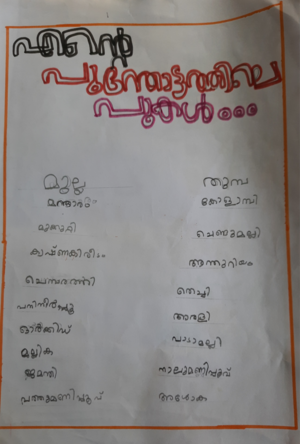 എന്റെ
പൂന്തോട്ടത്തിലെ
പൂക്കൾ...
മുല്ല
മന്ദാരം
മുക്കുറ്റി
കൃഷ്ണകിരീടം
ചെമ്പരത്തി
പനിനീർപ്പൂ
ഓർക്കിഡ്
മല്ലിക
ജമന്തി
പത്തുമണിപ്പൂവ്
തുമ്പ
കോളാമ്പി
ചെണ്ടുമല്ലി
ആന്തൂറിയം
തെച്ചി
അരളി
വാടാമല്ലി
നാലുമണിപ്പൂവ്
അശോക